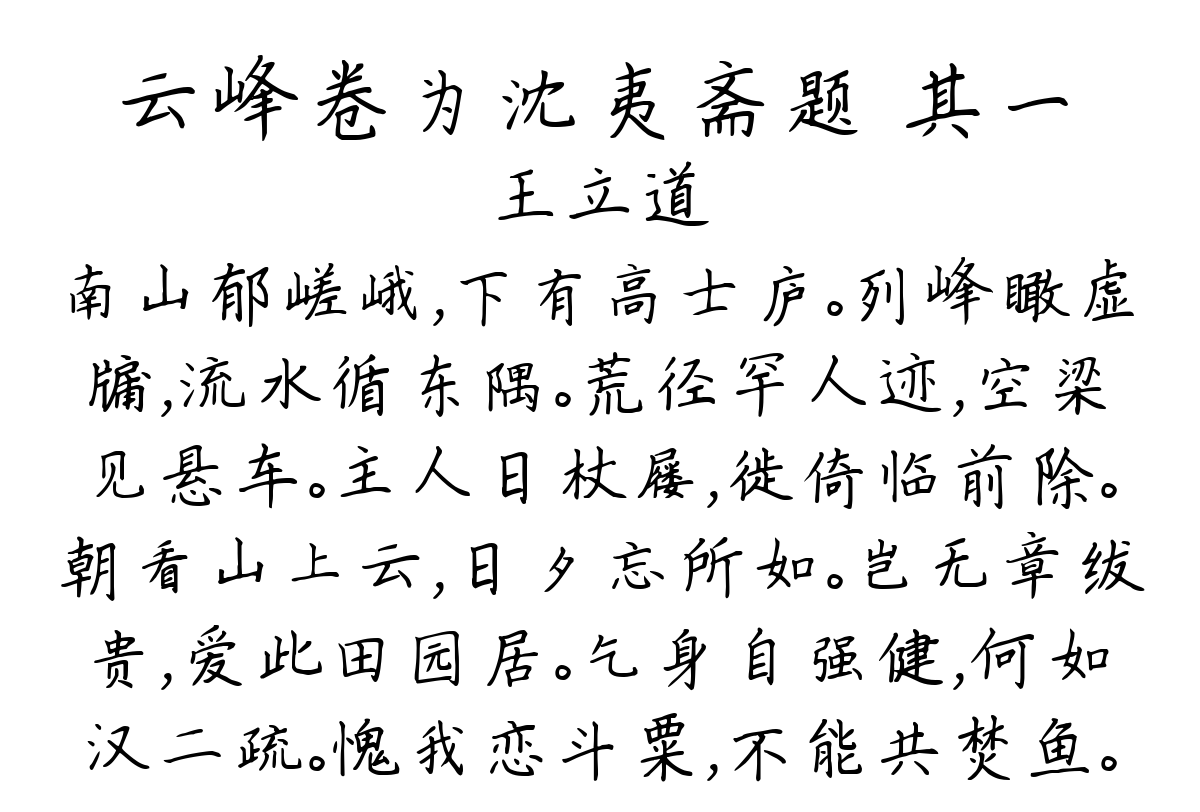 云峰卷为沈夷斋题 其一
王立道
南山郁嵯峨,下有高士庐。列峰瞰虚
牗,流水循东隅。荒径罕人迹,空梁
见悬车。主人日杖屦,徙倚临前除。
朝看山上云,日夕忘所如。岂无章绂
贵,爱此田园居。乞身自强健,何如
汉二疏。愧我恋斗粟,不能共焚鱼。